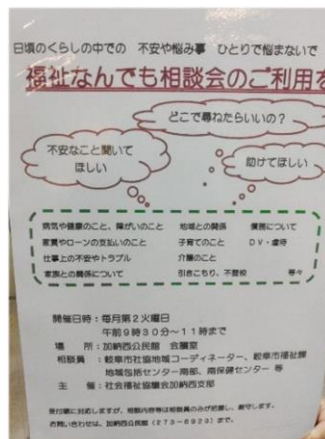 日頃のくらしの中での 不安や悩み事 ひとりで悩まないで
福祉なんでも相談会のご利用を
どこで尋ねたらいいの？
不安なこと聞いて
ほしい
助けてほしい
病気や健康のこと、障がいのこと 地域との関係 債務について
家賃やローンの支払いのこと 子育てのこと DV・虐待
仕事上の不安やトラブル 介護のこと
家族との関係について 引きこもり、不登校 等々
開催日時：毎月第2火曜日
午前9時30分～11時まで
場 所：加納西公民館 会議室
相談員：岐阜市社協地域コーディネーター、岐阜市福祉課
地域包括センター南部、南保健センター 等
主 催：社会福祉協議会加納西支部
受付順に対応しますが、相談内容等は相談員のみが把握し、厳守します。
お問い合わせは、加納西公民館（273-6923）まで。